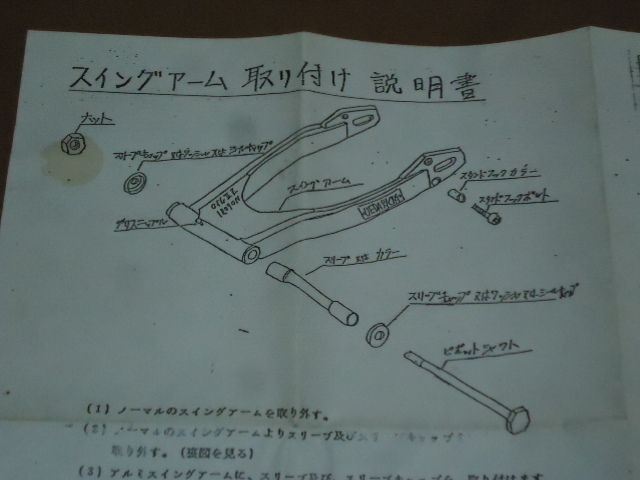 スイングアーム 取り付け 説明書
ナット
スリーブキャップ 又はワッシャ 又は シールキャップ
スイングアーム
スタンドフックカラー
スタンドフックボルト
グリスニップル
スリーブ 又は カラー
スリーブキャップ 又はワッシャ又はシールキャップ
ピボットシャフト
(1) ノーマルのスイングアームを取り外す。
(2) ノーマルのスイングアームよりスリーブ及び
取り外す。(裏図を見る)
(3) アルミスイングアームに、スリーブ及び、スリーブキャップを、取り付けます